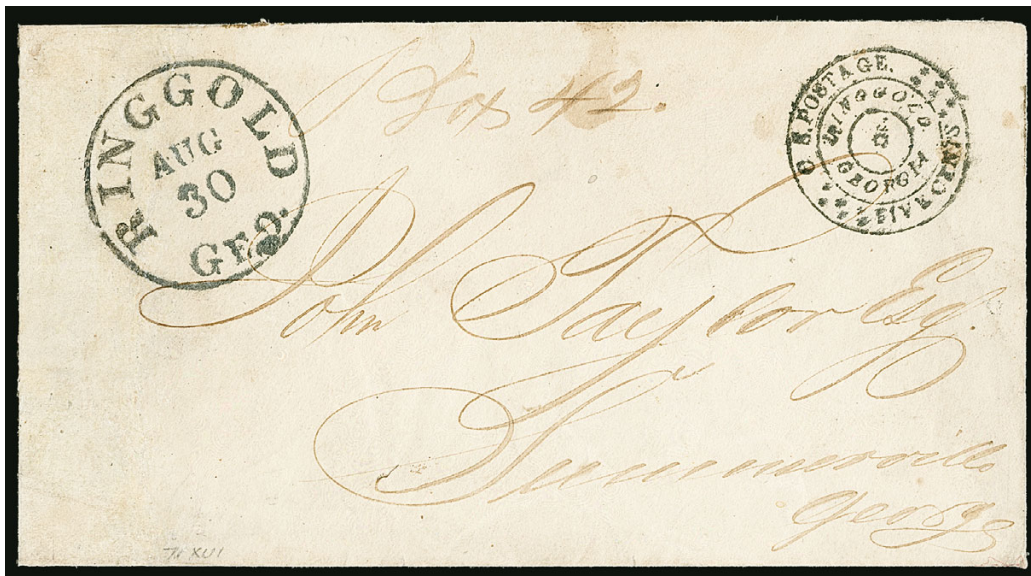 Box 42.
RINGGOLD
AUG
30
GEO.
C. S. POSTAGE.
FIVE CENTS
RINGGOLD
5
GEORGIA
John Taylor Esq.
Summerville
Georga